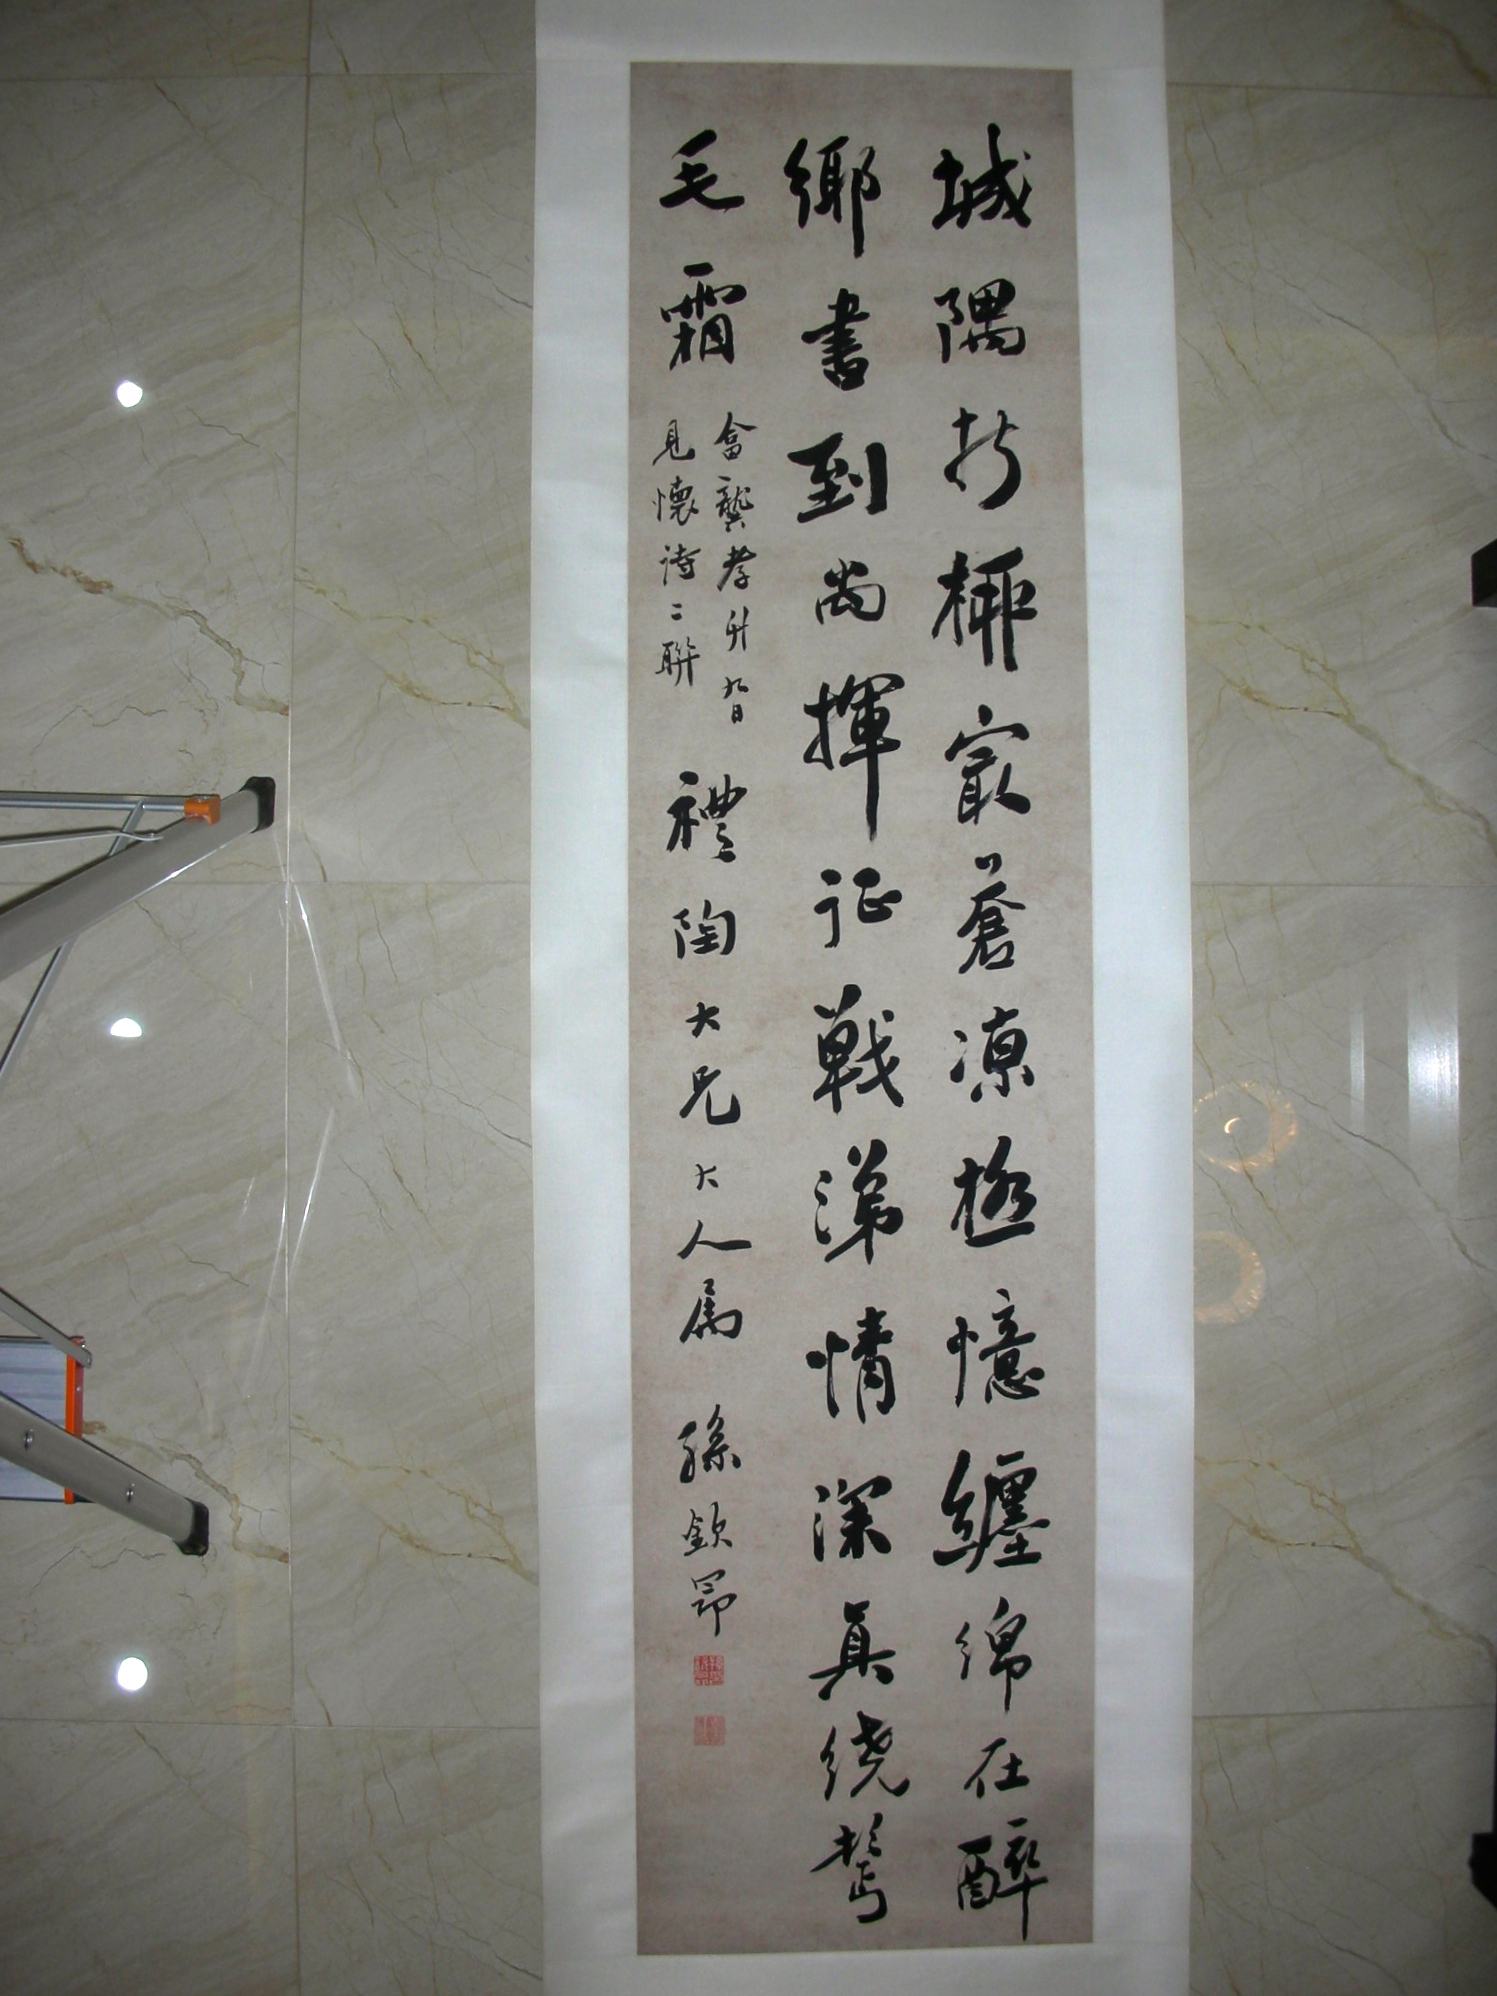 城隅折柳最蒼涼極憶纏綿在醉
鄉書到尚揮征戰涕情深真繞鬢
毛霜
畣龔孝升九日
見懷詩二聯
禮陶大兄大人属 孫欽昂